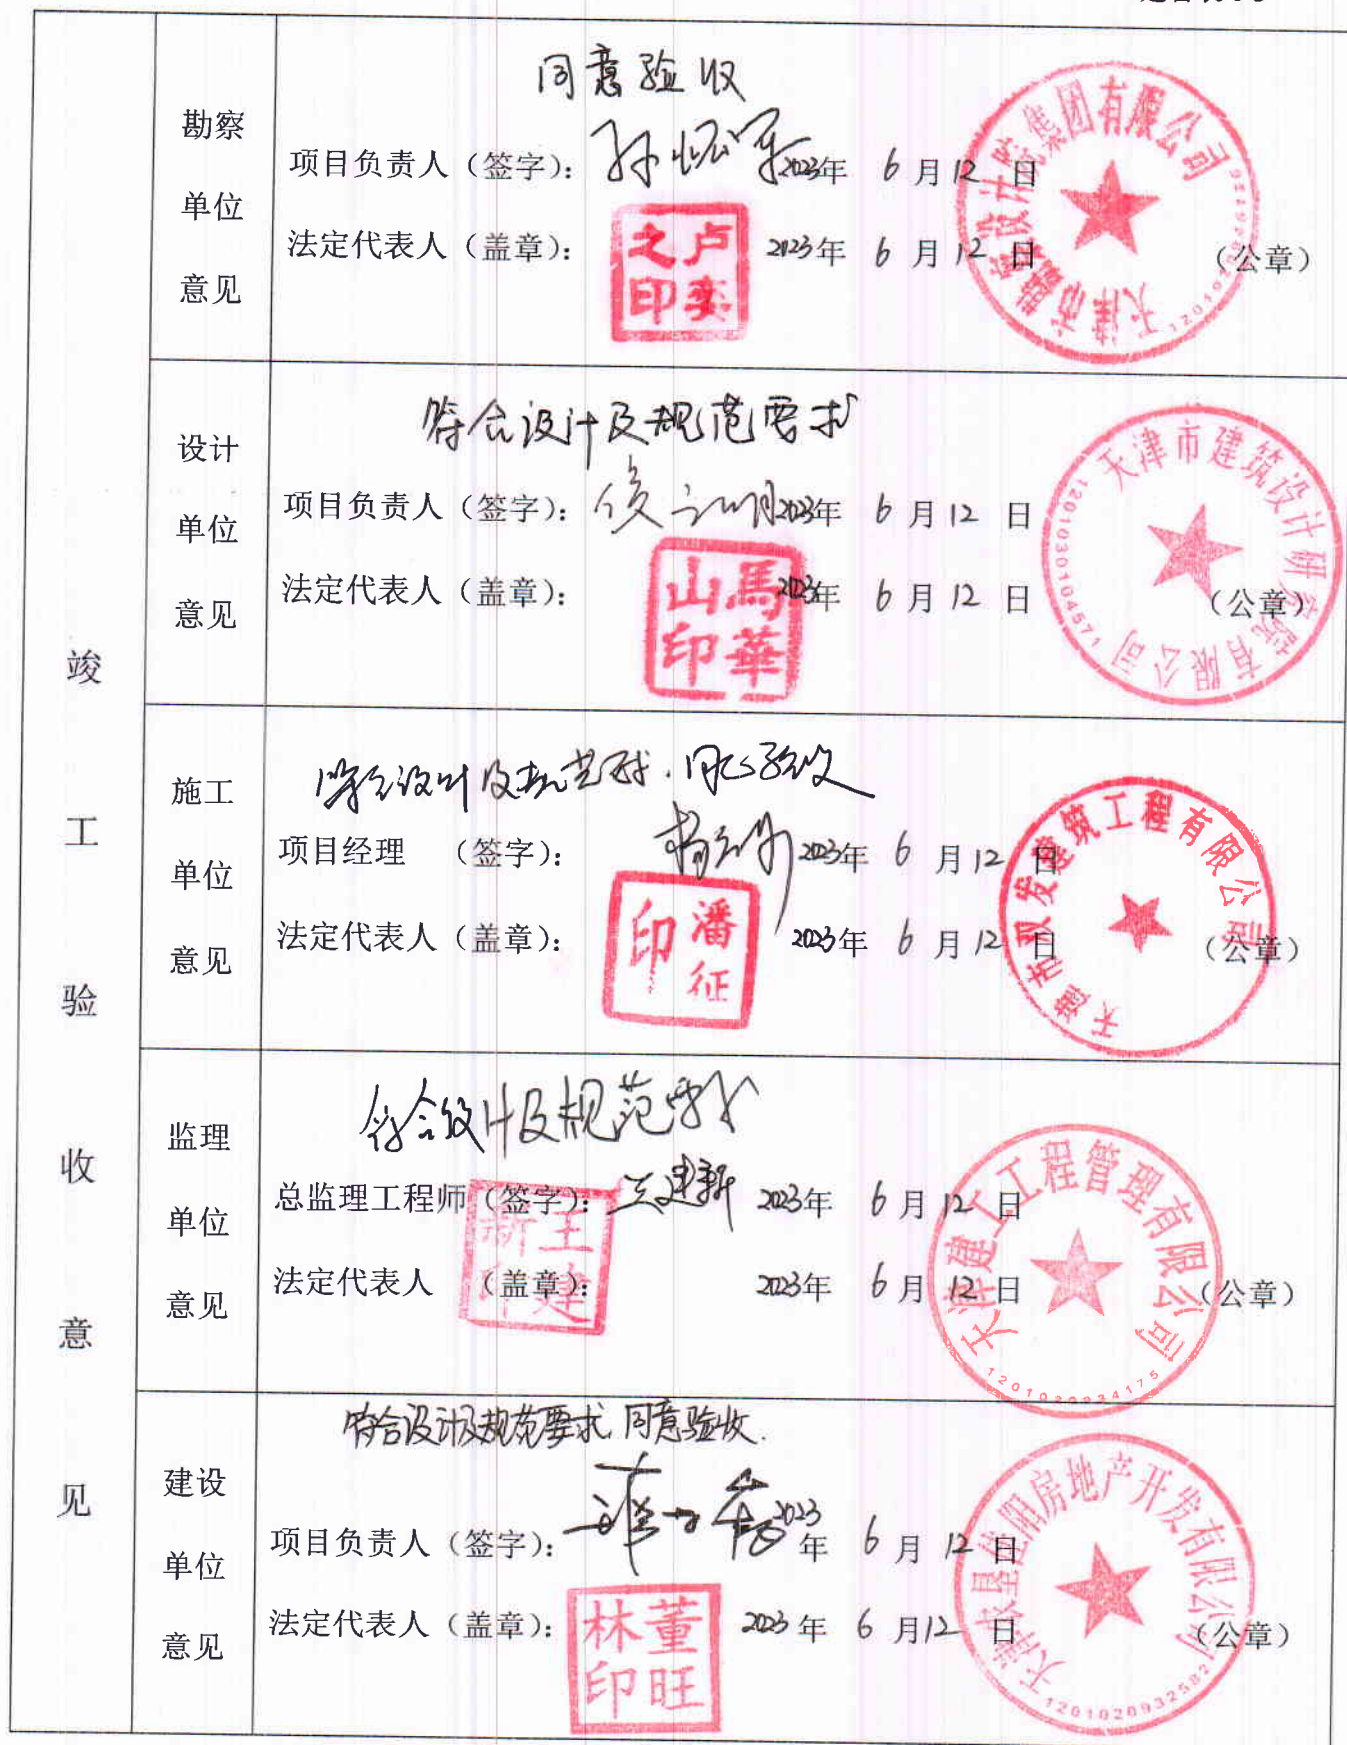 竣工验收意见
勘察单位意见
同意验收
项目负责人（签字）： 2023年 6月12日
法定代表人（盖章）： 2023年 6月12日 （公章）
卢奕之印
集团有限公司
设计单位意见
符合设计及规范要求
项目负责人（签字）： 2023年 6月12日
法定代表人（盖章）： 2023年 6月12日 （公章）
馬華山印
天津市建筑设计研究院有限公司
1201030104571
施工单位意见
符合设计及规范要求.同意验收
项目经理 （签字）： 2023年 6月12日
法定代表人（盖章）： 2023年 6月12日 （公章）
潘征印
双发建筑工程有限公司
监理单位意见
符合设计及规范要求
总监理工程师（签字）：王建新 2023年 6月12日
法定代表人 （盖章）： 2023年 6月12日 （公章）
王建新印
天津建工工程管理有限公司
1201020934175
建设单位意见
符合设计及规范要求,同意验收.
项目负责人（签字）： 2023年 6月12日
法定代表人（盖章）： 2023年 6月12日 （公章）
董旺林印
房地产开发有限公司